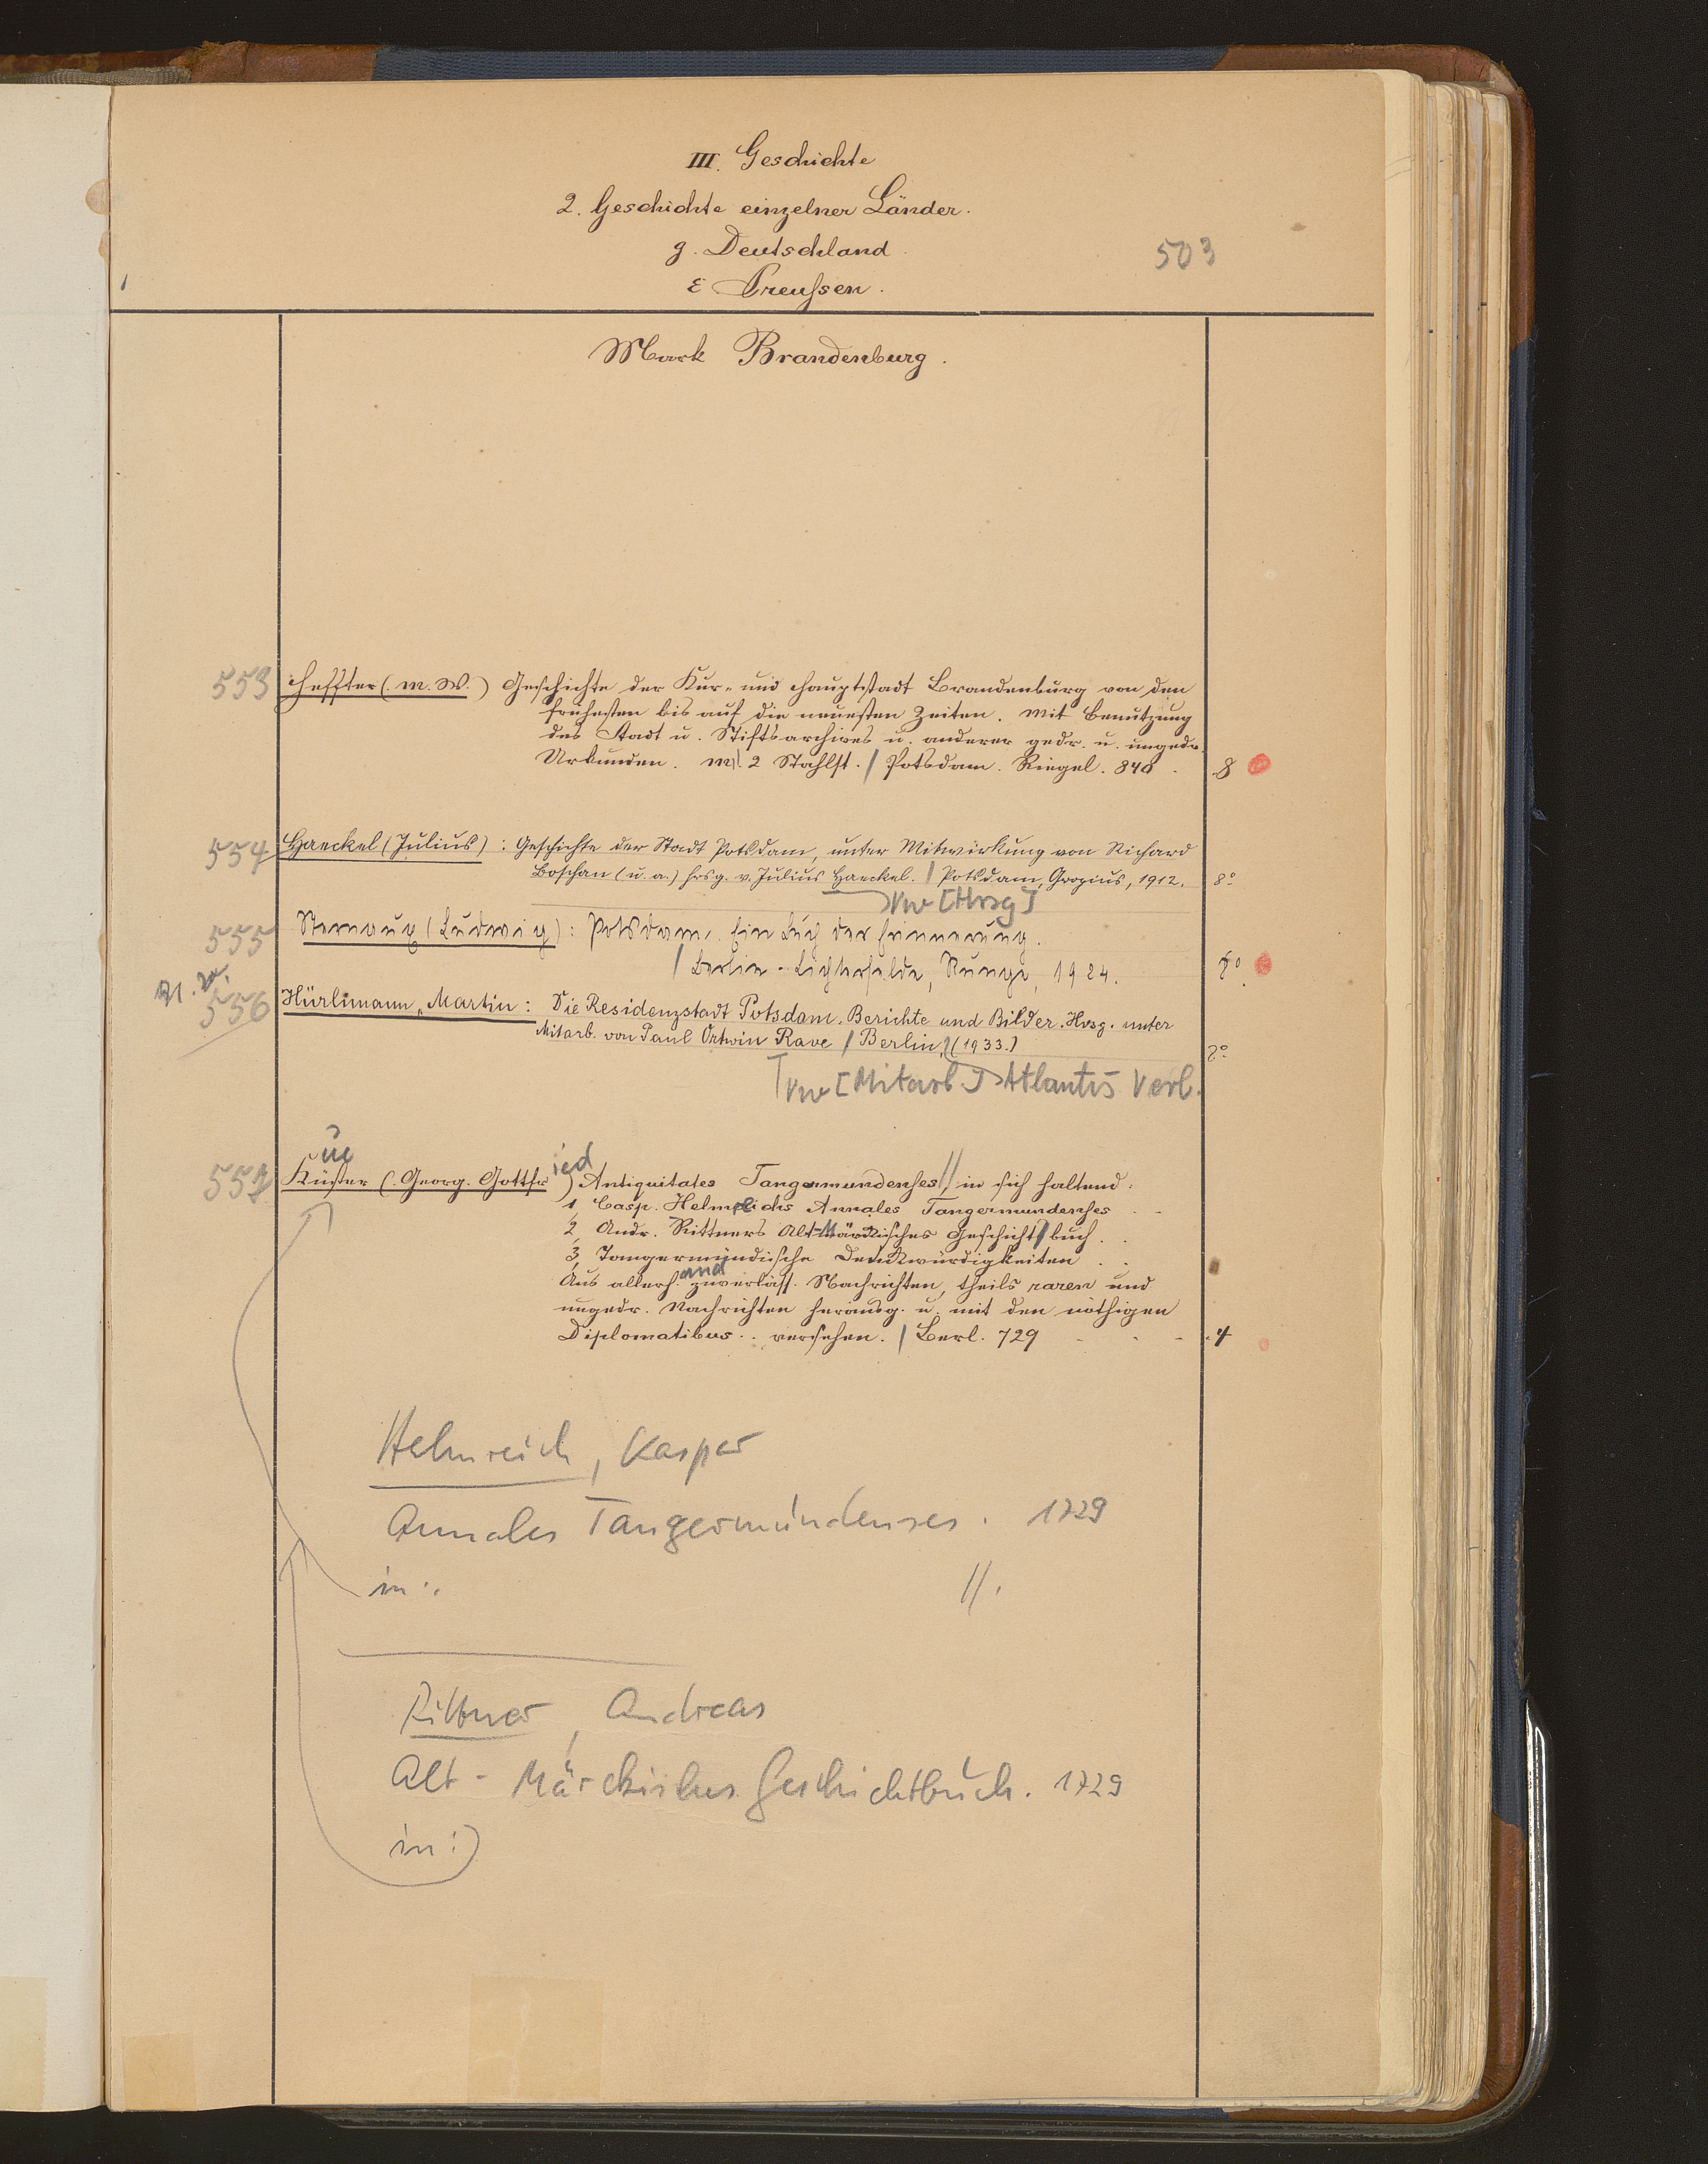 III. Geschichte
2. Geschichte einzelner Länder.
g. Deutschland
503
ε Preußen.
Mark Brandenburg.
553 Heffter (M. W.) Geschichte der Kur- und Hauptstadt Brandenburg von den
frühesten bis auf die neuesten Zeiten. Mit Benutzung
des Stadt u. Stiftsarchives u. anderer gedr. u. ungedr.
Urkunden. M. 2 Stahlst. / Potsdam. Riegel. 840. 8
554 Haeckel (Julius): Geschichte der Stadt Potsdam, unter Mitwirkung von Richard
Boschan (u. a.) hrsg. v. Julius Haeckel. / Potsdam, Gropius, 1912. 8°
Vw [Hrsg]
555 Sternaux (Ludwig): Potsdam. Ein Buch der Erinnerung.
/ Berlin-Lichterfelde, Runge, 1924. 8°
556 Hürlimann, Martin: Die Residenzstadt Potsdam. Berichte und Bilder. Hrsg. unter
Mitarb. von Paul Ortwin Rave / Berlin, (1933.) 2°
Vw [Mitarb.] Atlantis Verl.
üe
ied
557 Küster (Georg. Gottfr) Antiquitates Tangermundenses // in sich haltend:
1, Casp. Helmreichs Annales Tangermundenses
2, Andr. Rittners Alt-Märckisches Geschicht/buch.
3, Tangermündische Denckwürdigkeiten
and
Aus allerh. zuverläss. Nachrichten, theils raren und
ungedr. Nachrichten herausg. u. mit den nöthigen
Diplomatibus .. versehen. / Berl. 729 4
Helmreich, Kaspar
Annales Tangermundenses. 1729
in: //.
Rittner, Andreas
Alt-Märckisches Geschichtbuch. 1729
in: